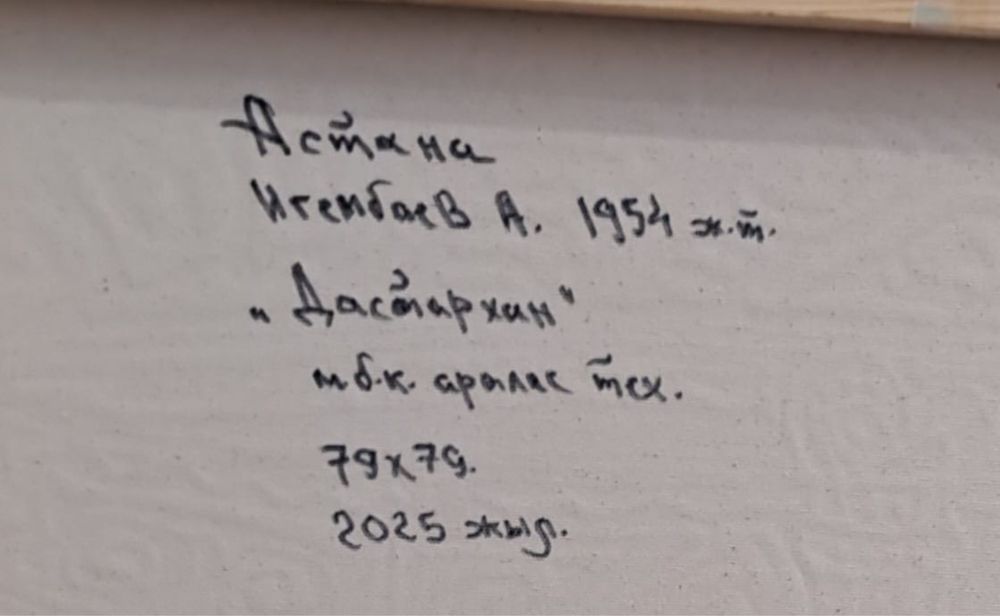 Астана
Игембаев А. 1954 ж.т.
"Дастархан"
м б.к. аралас тех.
79х79.
2025 жыл.